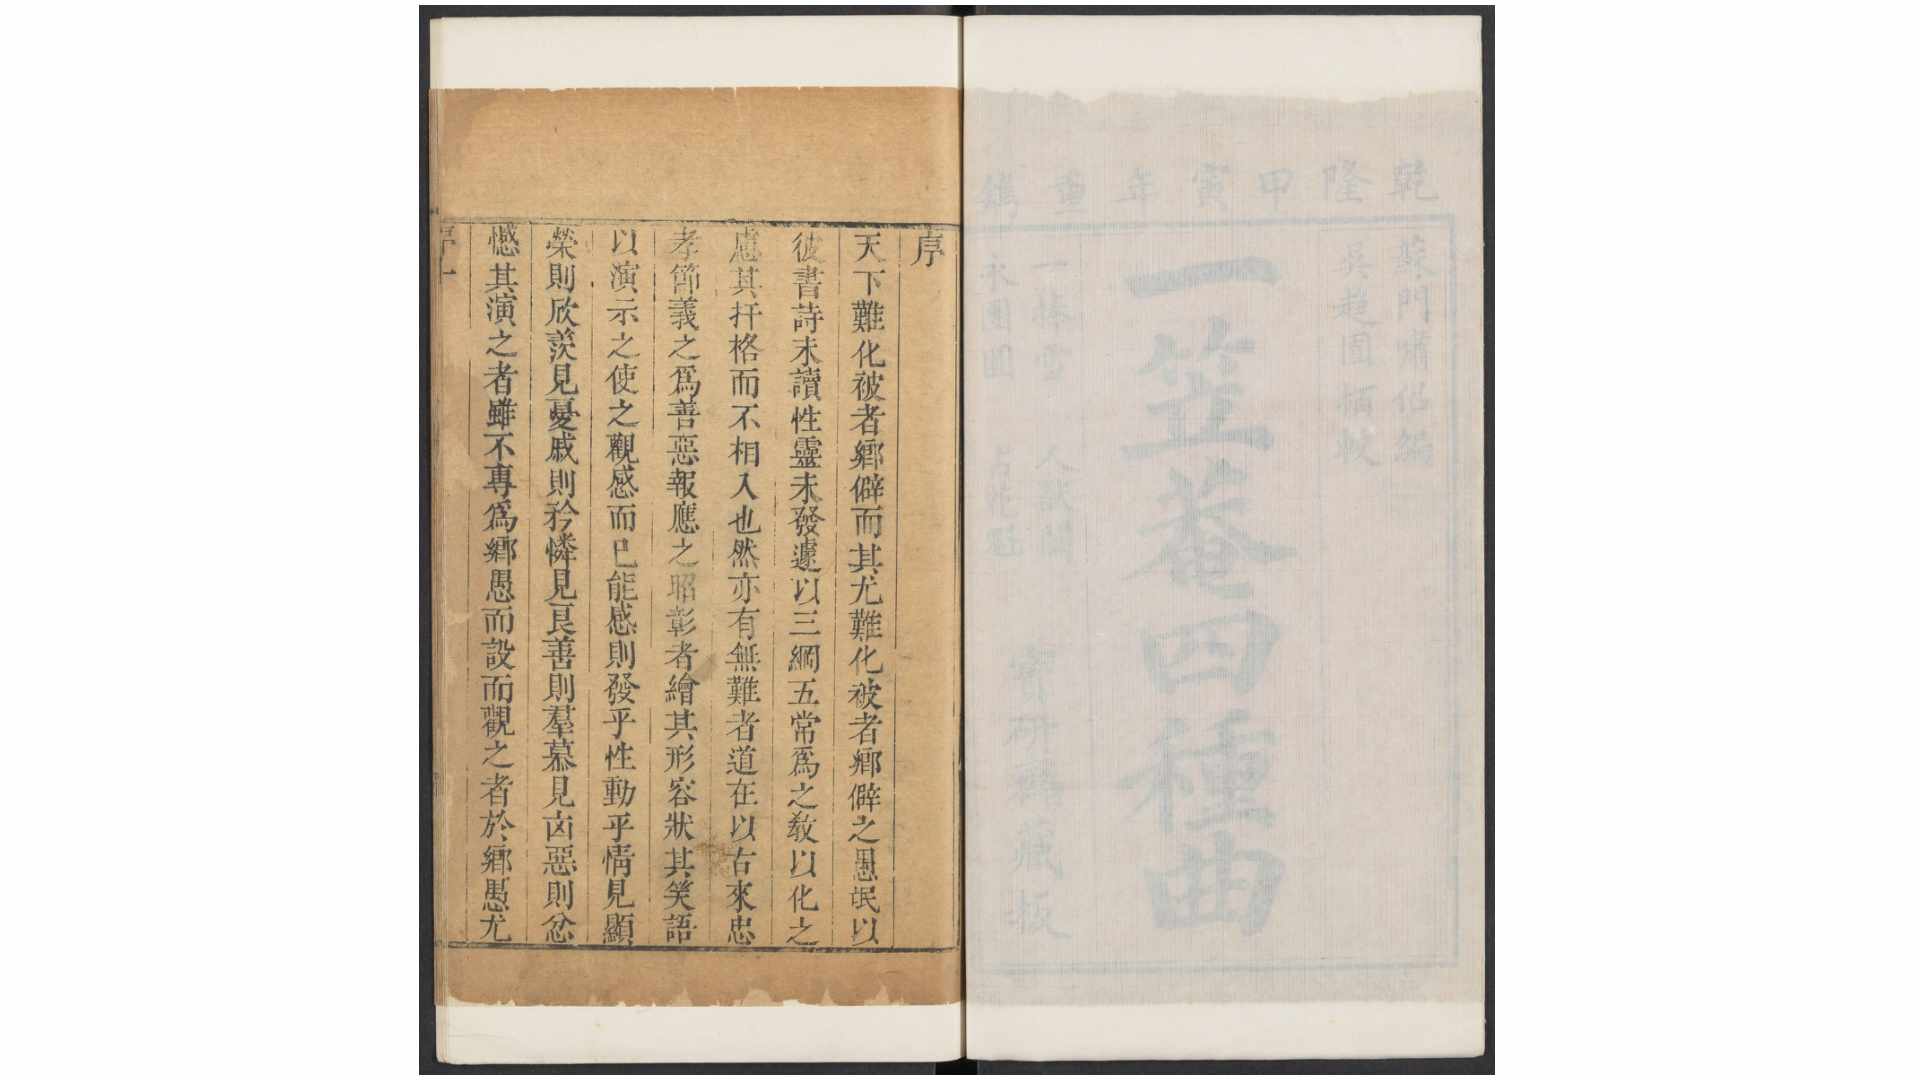 乾隆甲寅年重鐫
蘇門嘯侶編
吳趨
一笠菴四種曲
一捧雪 人獸關
永團圓 占花魁
寶研齋藏板
序
天下難化被者鄉僻而其尤難化被者鄉僻之愚氓以
彼書詩未讀性靈未發遽以三綱五常爲之敎以化之
慮其扞格而不相入也然亦有無難者道在以古來忠
孝節義之爲善惡報應之昭彰者繪其形容狀其笑語
以演示之使之觀感而已能感則發乎性動乎情見顯
榮則欣羨見憂戚則矜憐見良善則羣慕見㐫惡則忿
憾其演之者雖不專爲鄉愚而設而觀之者於鄉愚尤
序一